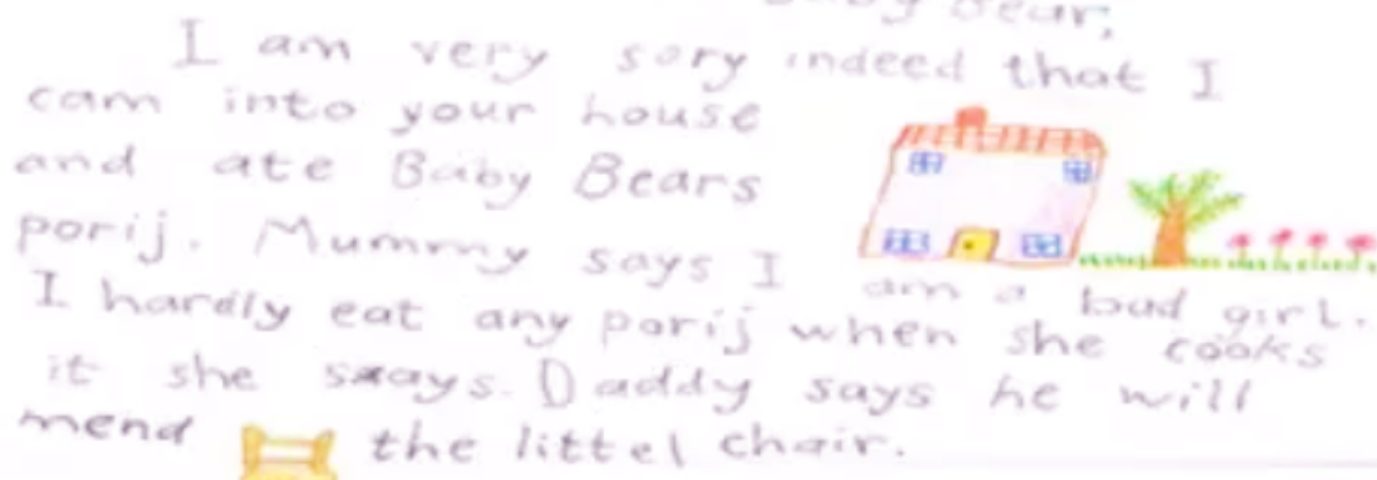 Baby Bear,
I am very sory indeed that I
cam into your house
and ate Baby Bears
porij. Mummy says I am a bad girl.
I hardly eat any porij when she cooks
it she says. Daddy says he will
mend the littel chair.